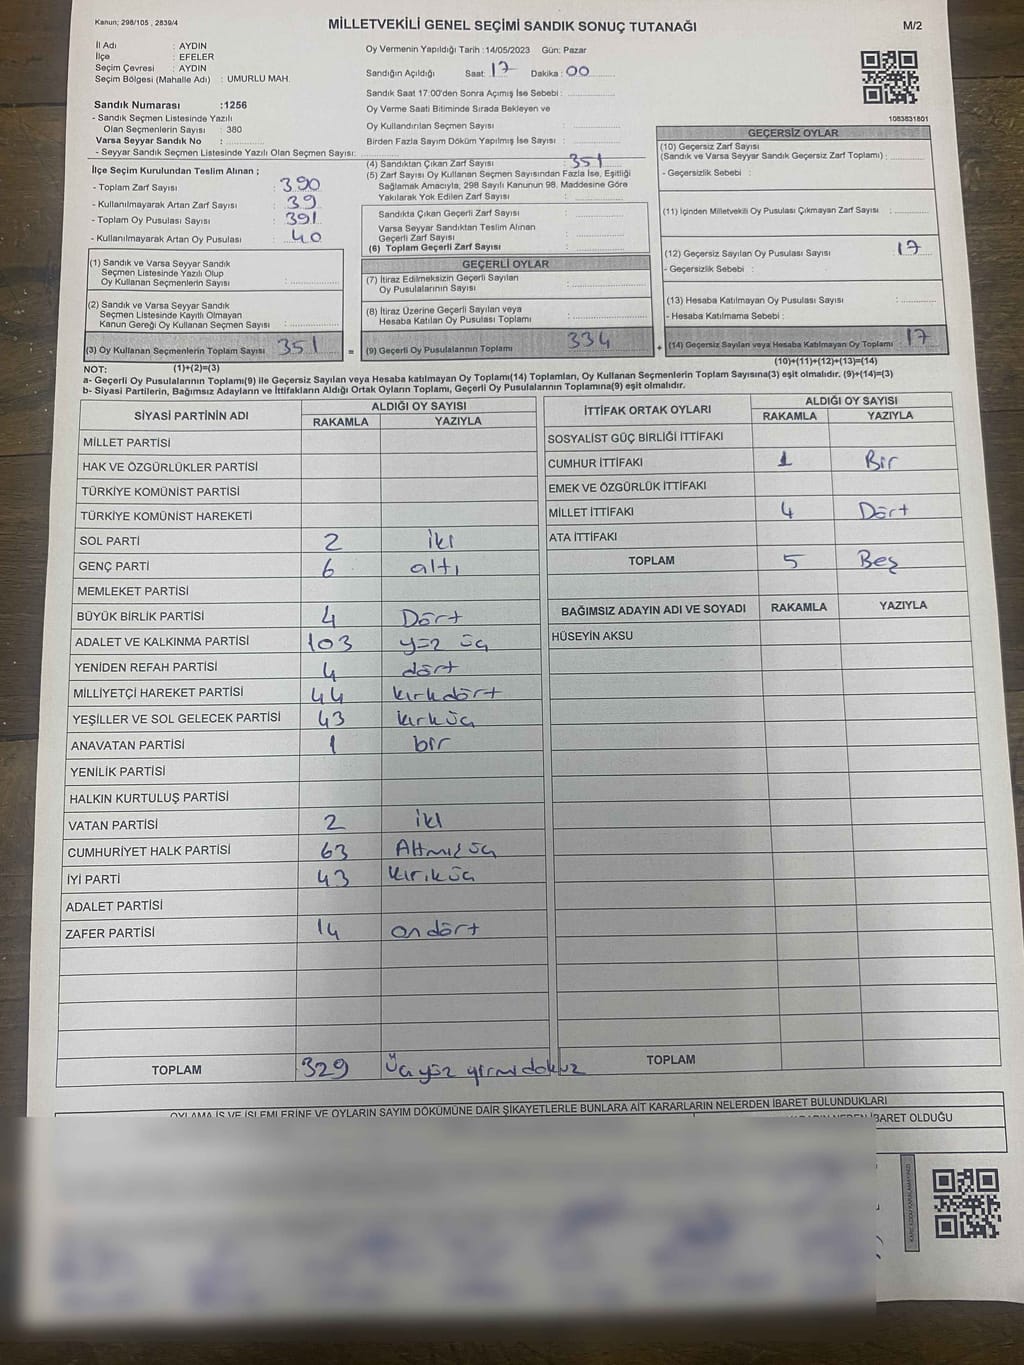 Kanun; 298/105 , 2839/4
MİLLETVEKİLİ GENEL SEÇİMİ SANDIK SONUÇ TUTANAĞI
M/2
İl Adı : AYDIN
İlçe : EFELER
Seçim Çevresi : AYDIN
Seçim Bölgesi (Mahalle Adı) : UMURLU MAH.
Sandık Numarası :1256
- Sandık Seçmen Listesinde Yazılı
Olan Seçmenlerin Sayısı : 380
Varsa Seyyar Sandık No :
- Seyyar Sandık Seçmen Listesinde Yazılı Olan Seçmen Sayısı:
İlçe Seçim Kurulundan Teslim Alınan ;
- Toplam Zarf Sayısı : 390
- Kullanılmayarak Artan Zarf Sayısı : 39
- Toplam Oy Pusulası Sayısı : 391
- Kullanılmayarak Artan Oy Pusulası : 40
(1) Sandık ve Varsa Seyyar Sandık
Seçmen Listesinde Yazılı Olup
Oy Kullanan Seçmenlerin Sayısı :
(2) Sandık ve Varsa Seyyar Sandık
Seçmen Listesinde Kayıtlı Olmayan
Kanun Gereği Oy Kullanan Seçmen Sayısı :
(3) Oy Kullanan Seçmenlerin Toplam Sayısı 351 =
Oy Vermenin Yapıldığı Tarih :14/05/2023 Gün: Pazar
Sandığın Açıldığı Saat: 17 Dakika : 00
Sandık Saat 17:00'den Sonra Açımış İse Sebebi :
Oy Verme Saati Bitiminde Sırada Bekleyen ve
Oy Kullandırılan Seçmen Sayısı :
Birden Fazla Sayım Döküm Yapılmış İse Sayısı :
(4) Sandıktan Çıkan Zarf Sayısı : 351
(5) Zarf Sayısı Oy Kullanan Seçmen Sayısından Fazla İse, Eşitliği
Sağlamak Amacıyla, 298 Sayılı Kanunun 98. Maddesine Göre
Yakılarak Yok Edilen Zarf Sayısı :
Sandıkta Çıkan Geçerli Zarf Sayısı :
Varsa Seyyar Sandıktan Teslim Alınan
Geçerli Zarf Sayısı :
(6) Toplam Geçerli Zarf Sayısı :
GEÇERLİ OYLAR
(7) İtiraz Edilmeksizin Geçerli Sayılan
Oy Pusulalarının Sayısı :
(8) İtiraz Üzerine Geçerli Sayılan veya
Hesaba Katılan Oy Pusulası Toplamı :
(9) Geçerli Oy Pusulalarının Toplamı 334 +
1083831801
GEÇERSİZ OYLAR
(10) Geçersiz Zarf Sayısı
(Sandık ve Varsa Seyyar Sandık Geçersiz Zarf Toplamı) :
- Geçersizlik Sebebi :
(11) İçinden Milletvekili Oy Pusulası Çıkmayan Zarf Sayısı :
(12) Geçersiz Sayılan Oy Pusulası Sayısı : 17
- Geçersizlik Sebebi :
(13) Hesaba Katılmayan Oy Pusulası Sayısı :
- Hesaba Katılmama Sebebi :
(14) Geçersiz Sayılan veya Hesaba Katılmayan Oy Toplamı 17
NOT: (1)+(2)=(3) (10)+(11)+(12)+(13)=(14)
a- Geçerli Oy Pusulalarının Toplamı(9) ile Geçersiz Sayılan veya Hesaba katılmayan Oy Toplamı(14) Toplamları, Oy Kullanan Seçmenlerin Toplam Sayısına(3) eşit olmalıdır. (9)+(14)=(3)
b- Siyasi Partilerin, Bağımsız Adayların ve İttifakların Aldığı Ortak Oyların Toplamı, Geçerli Oy Pusulalarının Toplamına(9) eşit olmalıdır.
SİYASİ PARTİNİN ADI ALDIĞI OY SAYISI
RAKAMLA YAZIYLA
MİLLET PARTİSİ
HAK VE ÖZGÜRLÜKLER PARTİSİ
TÜRKİYE KOMÜNİST PARTİSİ
TÜRKİYE KOMÜNİST HAREKETİ
SOL PARTİ 2 iki
GENÇ PARTİ 6 altı
MEMLEKET PARTİSİ
BÜYÜK BİRLİK PARTİSİ 4 Dört
ADALET VE KALKINMA PARTİSİ 103 yüz üç
YENİDEN REFAH PARTİSİ 4 dört
MİLLİYETÇİ HAREKET PARTİSİ 44 kırkdört
YEŞİLLER VE SOL GELECEK PARTİSİ 43 kırküç
ANAVATAN PARTİSİ 1 bir
YENİLİK PARTİSİ
HALKIN KURTULUŞ PARTİSİ
VATAN PARTİSİ 2 iki
CUMHURİYET HALK PARTİSİ 63 Altmışüç
İYİ PARTİ 43 kırıküç
ADALET PARTİSİ
ZAFER PARTİSİ 14 ondört
TOPLAM 329 Üçyüz yirmi dokuz
İTTİFAK ORTAK OYLARI ALDIĞI OY SAYISI
RAKAMLA YAZIYLA
SOSYALİST GÜÇ BİRLİĞİ İTTİFAKI
CUMHUR İTTİFAKI 1 Bir
EMEK VE ÖZGÜRLÜK İTTİFAKI
MİLLET İTTİFAKI 4 Dört
ATA İTTİFAKI
TOPLAM 5 Beş
BAĞIMSIZ ADAYIN ADI VE SOYADI RAKAMLA YAZIYLA
HÜSEYİN AKSU
TOPLAM
OYLAMA İŞ VE İŞLEMLERİNE VE OYLARIN SAYIM DÖKÜMÜNE DAİR ŞİKAYETLERLE BUNLARA AİT KARARLARIN NELERDEN İBARET BULUNDUKLARI
İBARET OLDUĞU